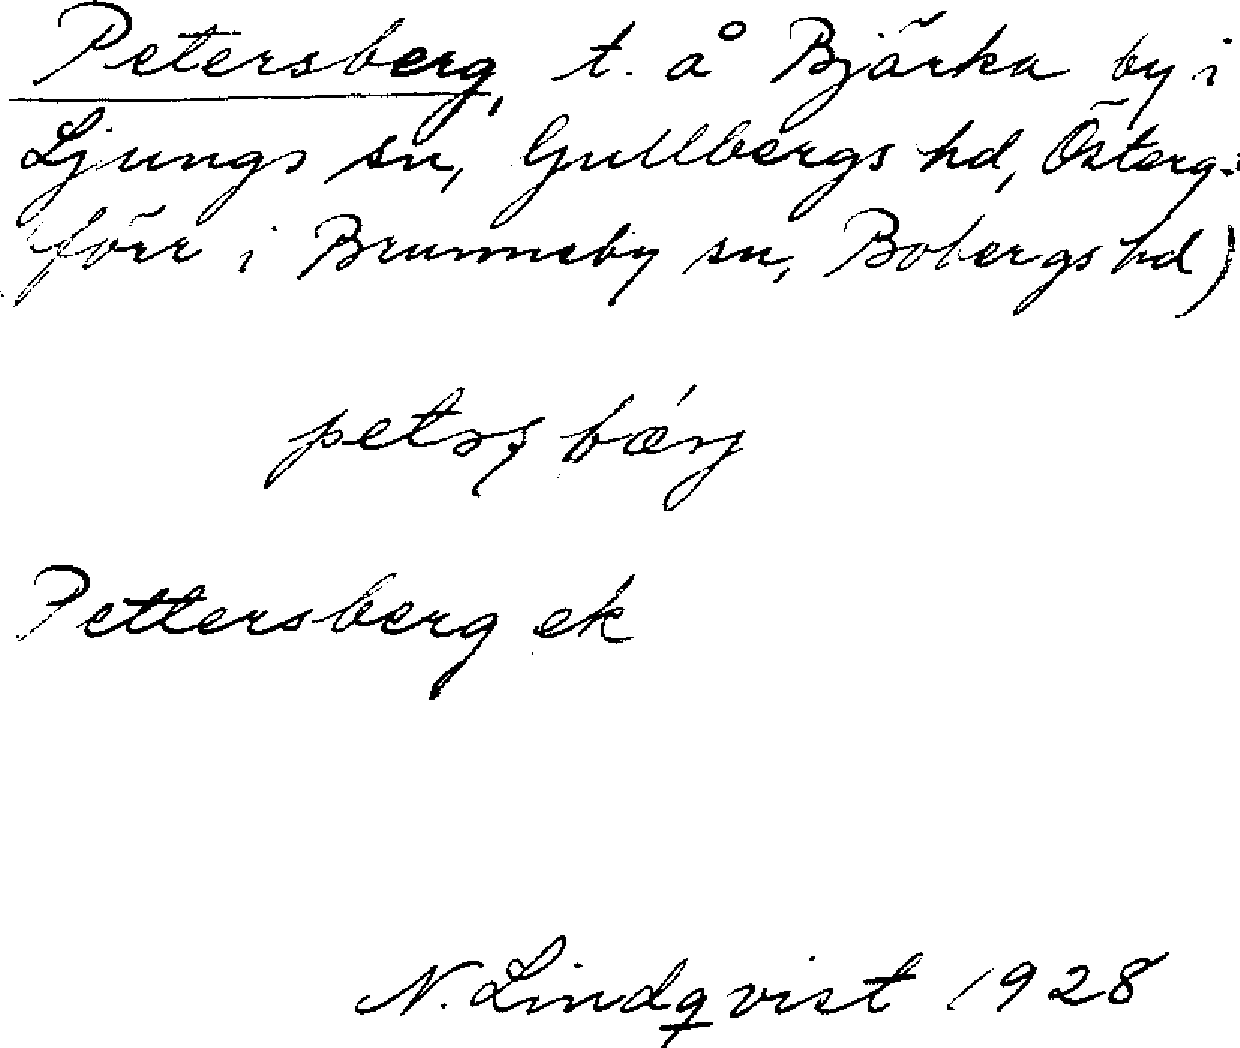 Petersberg, t. å Bjärka by i
Ljungs sn, Gullbergs hd, Österg.
(förr i Brunneby sn, Bobergs hd)
Pettersberg ek
N. Lindqvist 1928